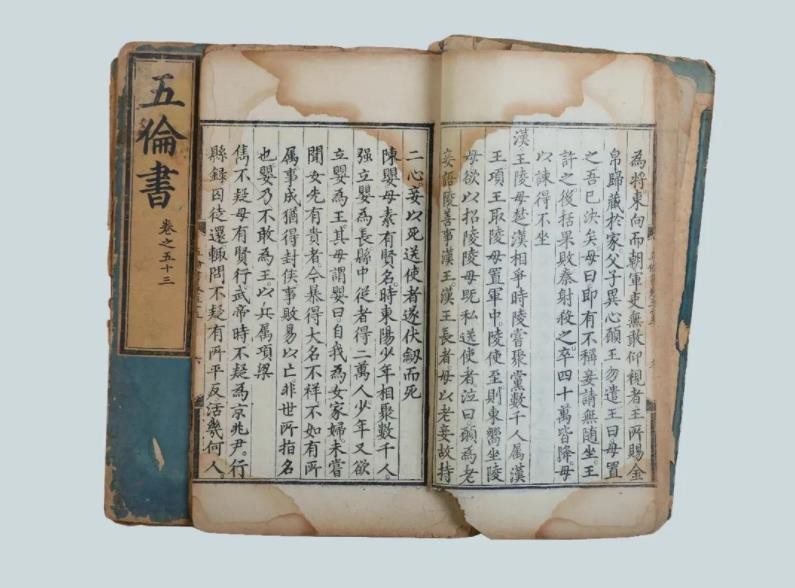 五倫書
卷之五十三
為將東向而朝軍吏無敢仰視者王所賜金
帛歸藏於家父子異心願王勿遣王曰母置
之吾已決矣母曰即有不稱妾請無隨坐王
許之後括果敗秦射殺之卒四十萬皆降母
以諫得不坐
漢王陵母楚漢相爭時陵嘗聚黨數千人屬漢
王項王取陵母置軍中陵使至則東嚮坐陵
母欲以招陵陵母既私送使者泣曰願為老
妾語陵善事漢王漢王長者母以老妾故持
二心妾以死送使者遂伏劒而死
陳嬰母素有賢名時東陽少年相聚數千人
强立嬰為長縣中從者得二萬人少年又欲
立嬰為王其母謂嬰曰自我為女家婦未嘗
聞女先有貴者今暴得大名不祥不如有所
属事成猶得封侯事敗易以亡非世所指名
也嬰乃不敢為王以兵属項梁
雋不疑母有賢行武帝時不疑為京兆尹行
縣録囚徒還輙問不疑有所平反活幾何人